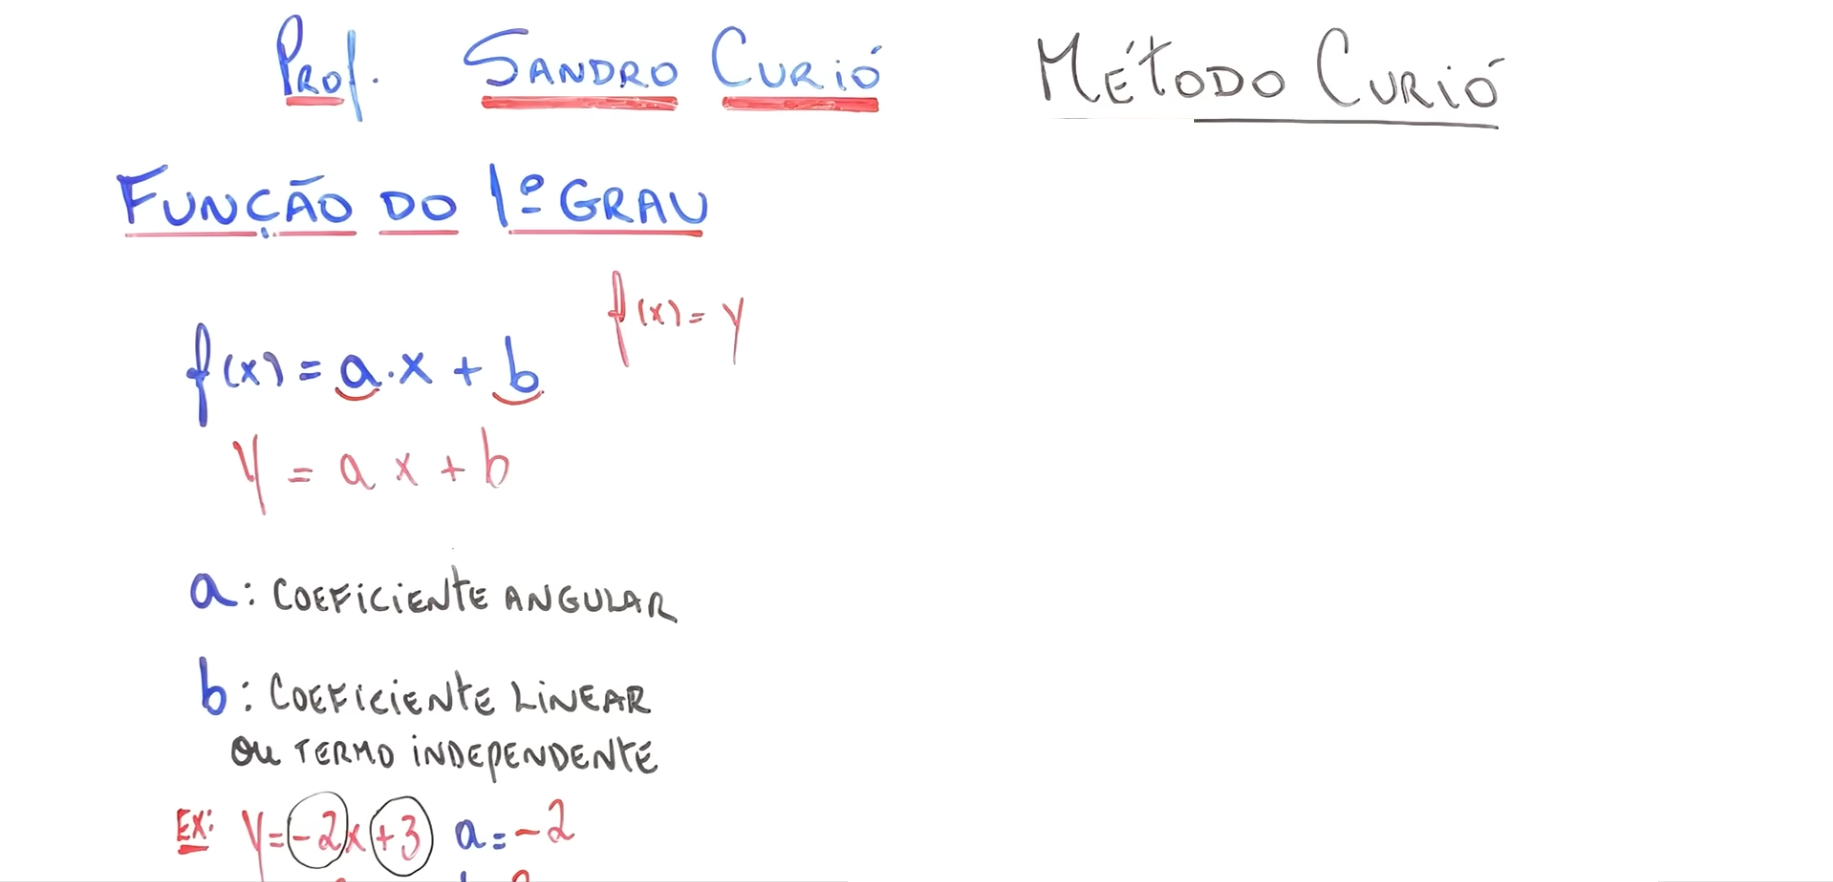 Prof. SANDRO CURIÓ MÉTODO CURIÓ
FUNÇÃO DO 1º GRAU
f(x) = y
f(x) = a.x + b
y = a x + b
a: COEFICIENTE ANGULAR
b: COEFICIENTE LINEAR
OU TERMO INDEPENDENTE
EX: y=-2x+3 a=-2